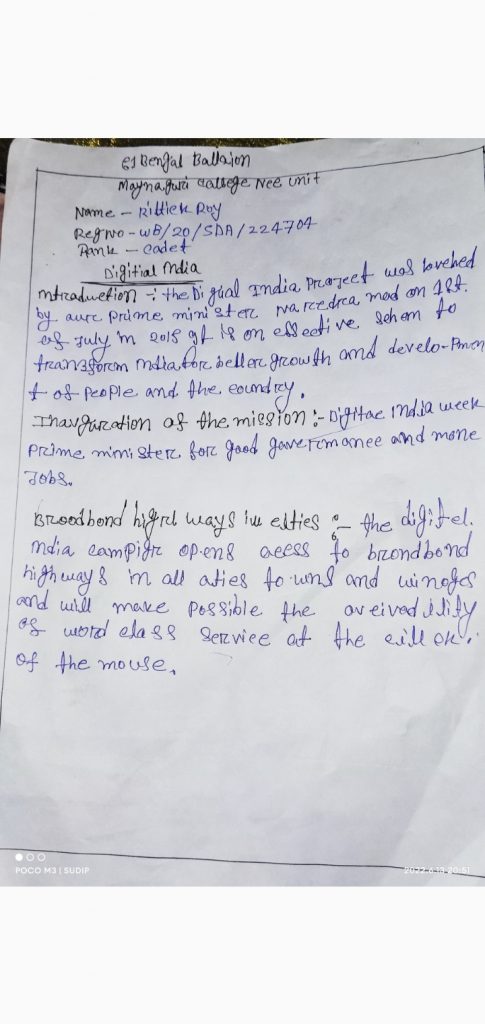 61 Bengal Ballaion
Maynaguri College Nee unit
Name - Rittick Roy
Reg No - WB/20/SDA/224704
Rank - cadet
Digitial mdia
mtraduction :- the Digial India Project was lovehed
by aure prime minister Narcedra mod on 1st.
of July in 2015 gt is on effective sehem to
transform mdia for beller growth and develo-Pmen
t of people and the coundry.
Inavguration of the mission :- Digitae India week
prime minister for good gavermanee and mone
Jobs.
Broodbond higrl ways in eities :- the digitel.
mdia campigr opens aeess to brondbond
highways in all aties to wns and winoges
and will make possible the aveivadility
of word elass serviee at the eillek.
of the mouse.
POCO M3 | SUDIP
2022.6.13 20:51